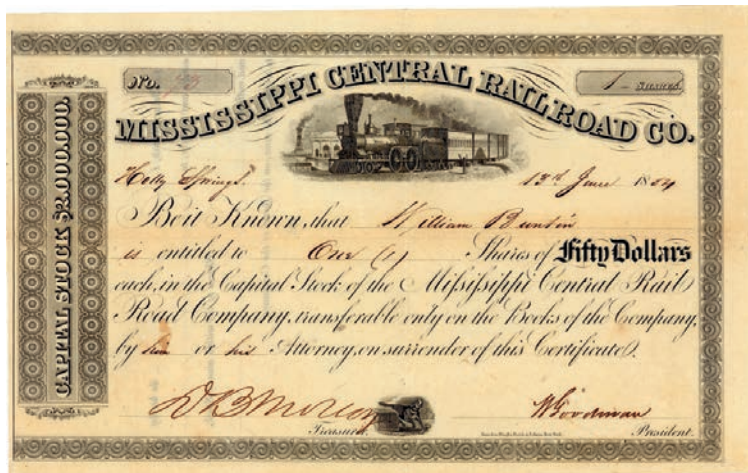 No. 1 - SHARES.
MISSISSIPPI CENTRAL RAIL ROAD CO.
CAPITAL STOCK $2,000,000.
Holly Springs. 13th June 1854
Be it Known, that William Buntin
is entitled to One (1) Shares of Fifty Dollars
each, in the Capital Stock of the Mississippi Central Rail
Road Company, transferable only on the Books of the Company,
by him or his Attorney, on surrender of this Certificate.
Treasurer. W Goodman
President.